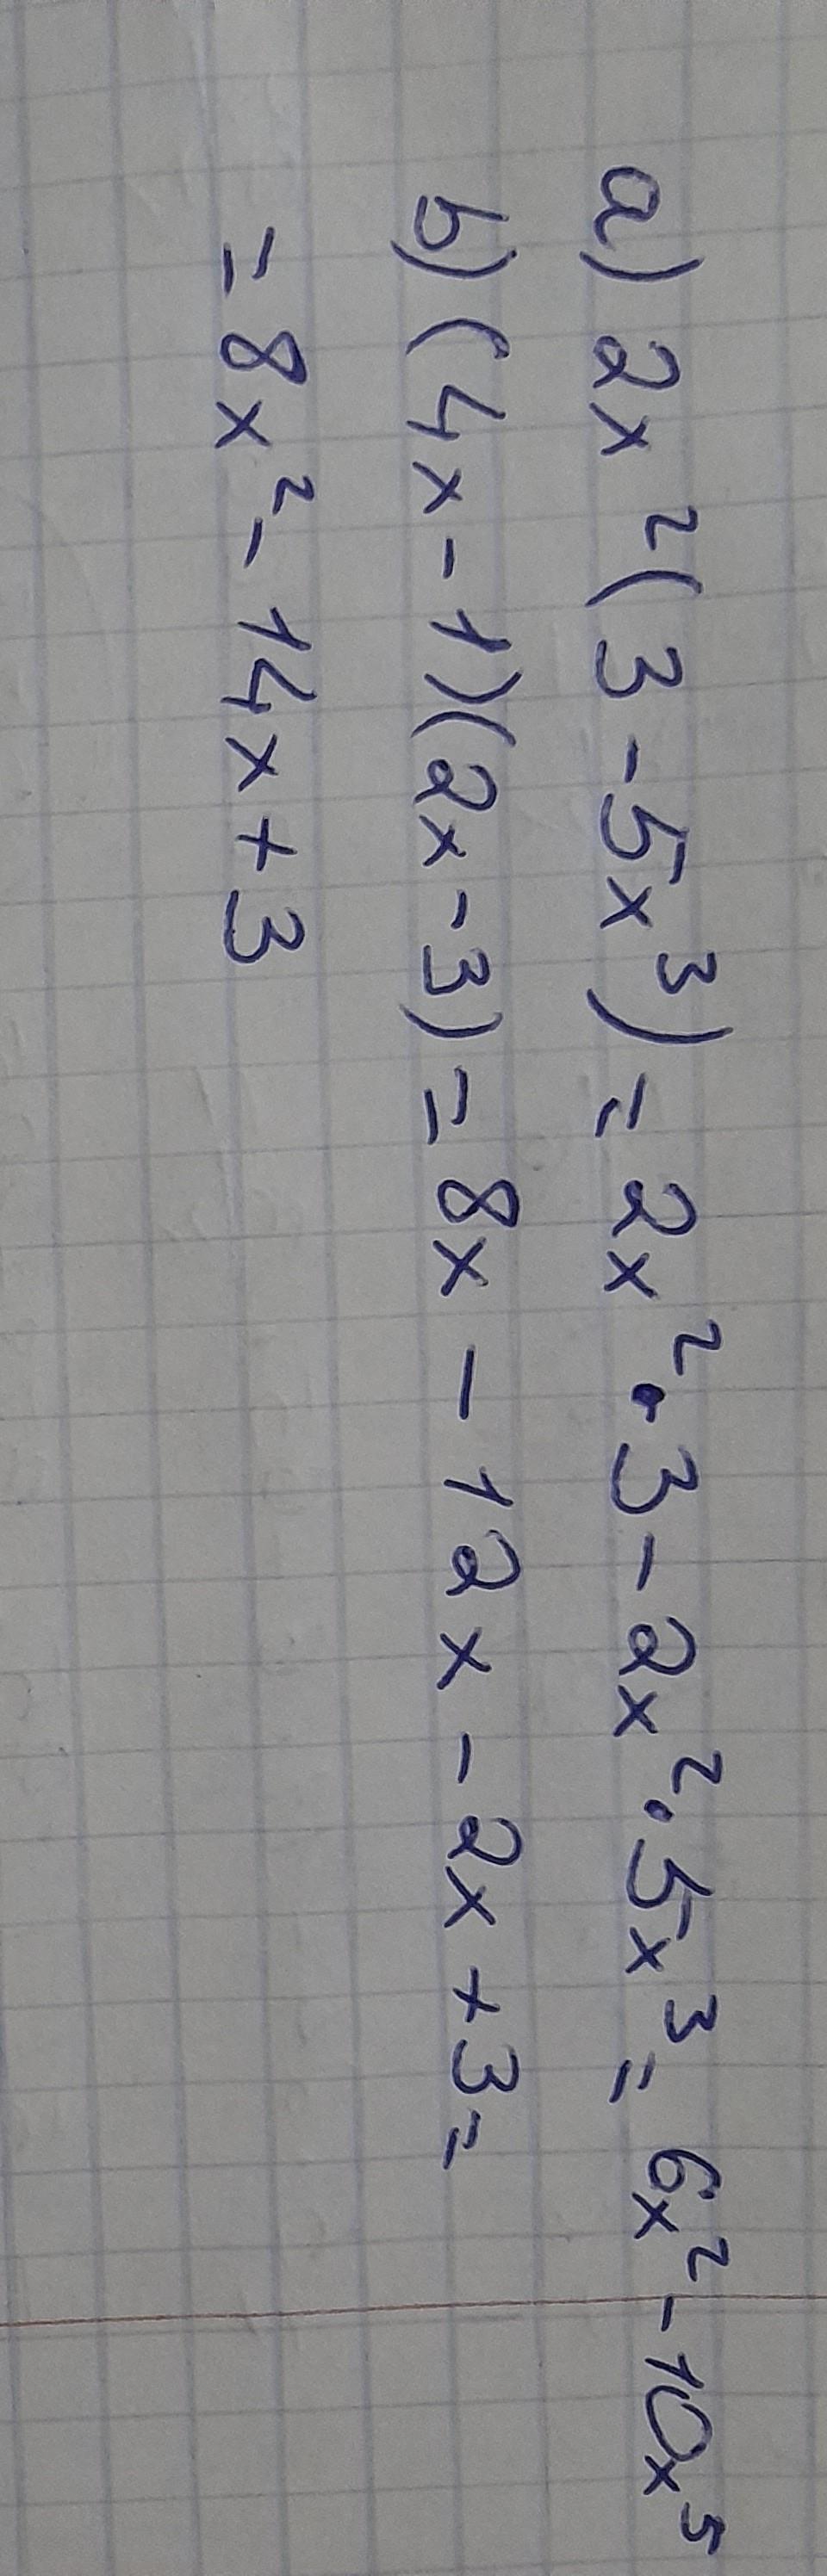 a) 2x²(3-5x³) = 2x²·3-2x²·5x³ = 6x²-10x⁵
b) (4x-1)(2x-3) = 8x - 12x - 2x + 3 =
= 8x² - 14x + 3